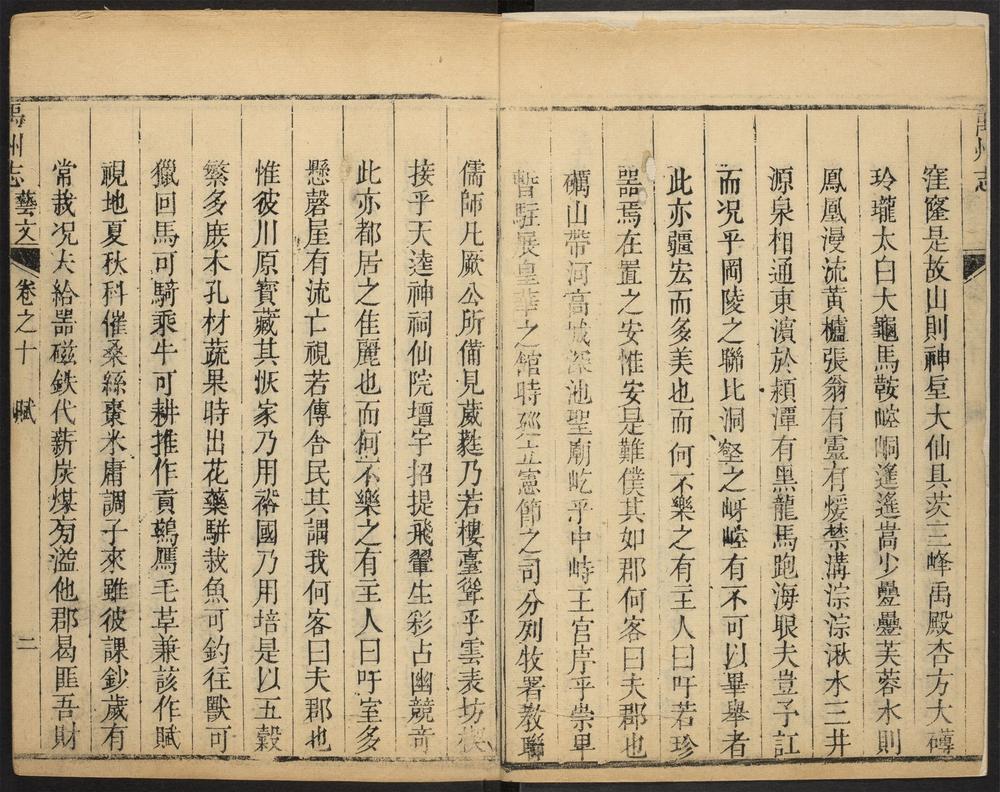 禹州志
窪窿是故山則神垕大仙具茨三峰禹殿杏方大礴
玲瓏太白大龜馬鞍崆峒遙遙嵩少疊疊芙蓉水則
鳳凰漫流黃櫨張翁有靈有煖禁溝淙淙湫水三井
源泉相通東濵於頴潭有黑龍馬跑海眼夫豈予訌
而况乎岡陵之聯比洞壑之岈嵯有不可以畢舉者
此亦疆宏而多美也而何不樂之有主人曰吁若珍
噐焉在置之安惟安是難僕其如郡何客曰夫郡也
礪山帶河高城深池聖廟屹乎中峙王宮序乎崇畢
暫駐展皇華之館時廵立憲節之司分列牧署教聯
儒師凡厥公所備見葳蕤乃若樓臺聳乎雲表坊
接乎天逵神祠仙院壇宇招提飛翬生彩占幽競竒
此亦都居之佳麗也而何不樂之有主人曰吁室多
懸磬屋有流亡視若傳舎民其謂我何客曰夫郡也
惟彼川原寳藏其恢家乃用裕國乃用培是以五糓
繁多庻木孔材蔬果時出花藥騈栽魚可釣往獸可
獵回馬可騎乘牛可耕推作貢鶉鴈毛草兼該作賦
視地夏秋科催桑絲棗米庸調子來雖彼課鈔歲有
常裁况夫給噐磁鉄代薪炭煤旁溢他郡曷匪吾財
禹州志 藝文 卷之十 賦 二